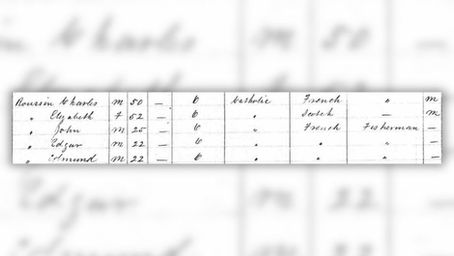 Roussin Charles m 50 — " Catholic French " m
" Elizabeth f 52 — " " Scotch — m
" John m 25 — " " French Fisherman —
" Edgar m 22 — " " " " —
" Edmund m 22 — " " " " —